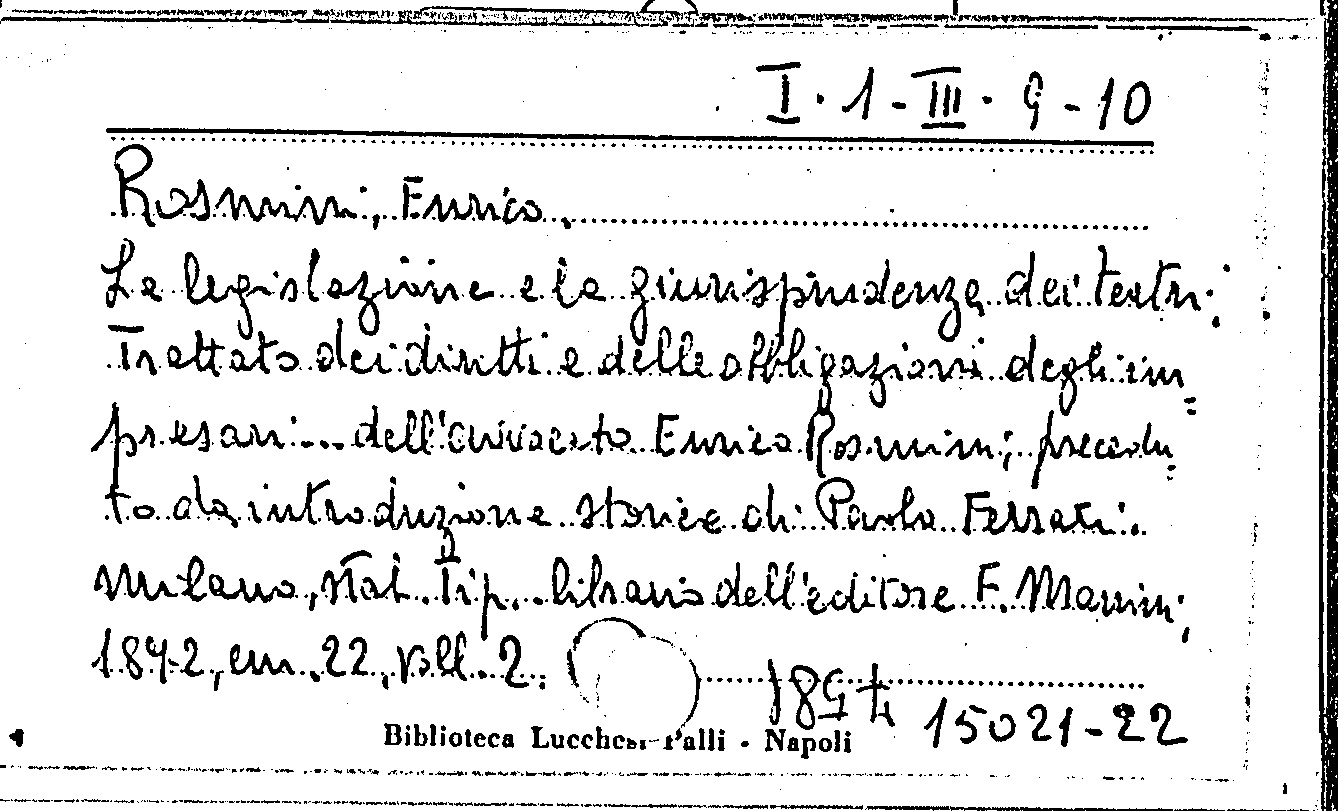 I. 1 - III. 9 - 10
Rosmini, Enrico.
La legislazione e la giurisprudenza dei teatri;
Trattato dei diritti e delle obbligazioni degli im=
presari... dell'avvocato Enrico Rosmini; precedu=
to da introduzione storica di Paolo Ferrari.
Milano, Stab. Tip. librario dell'editore F. Manini,
1872, cm. 22, voll. 2.
15021-22
Biblioteca Lucchesi-Palli - Napoli